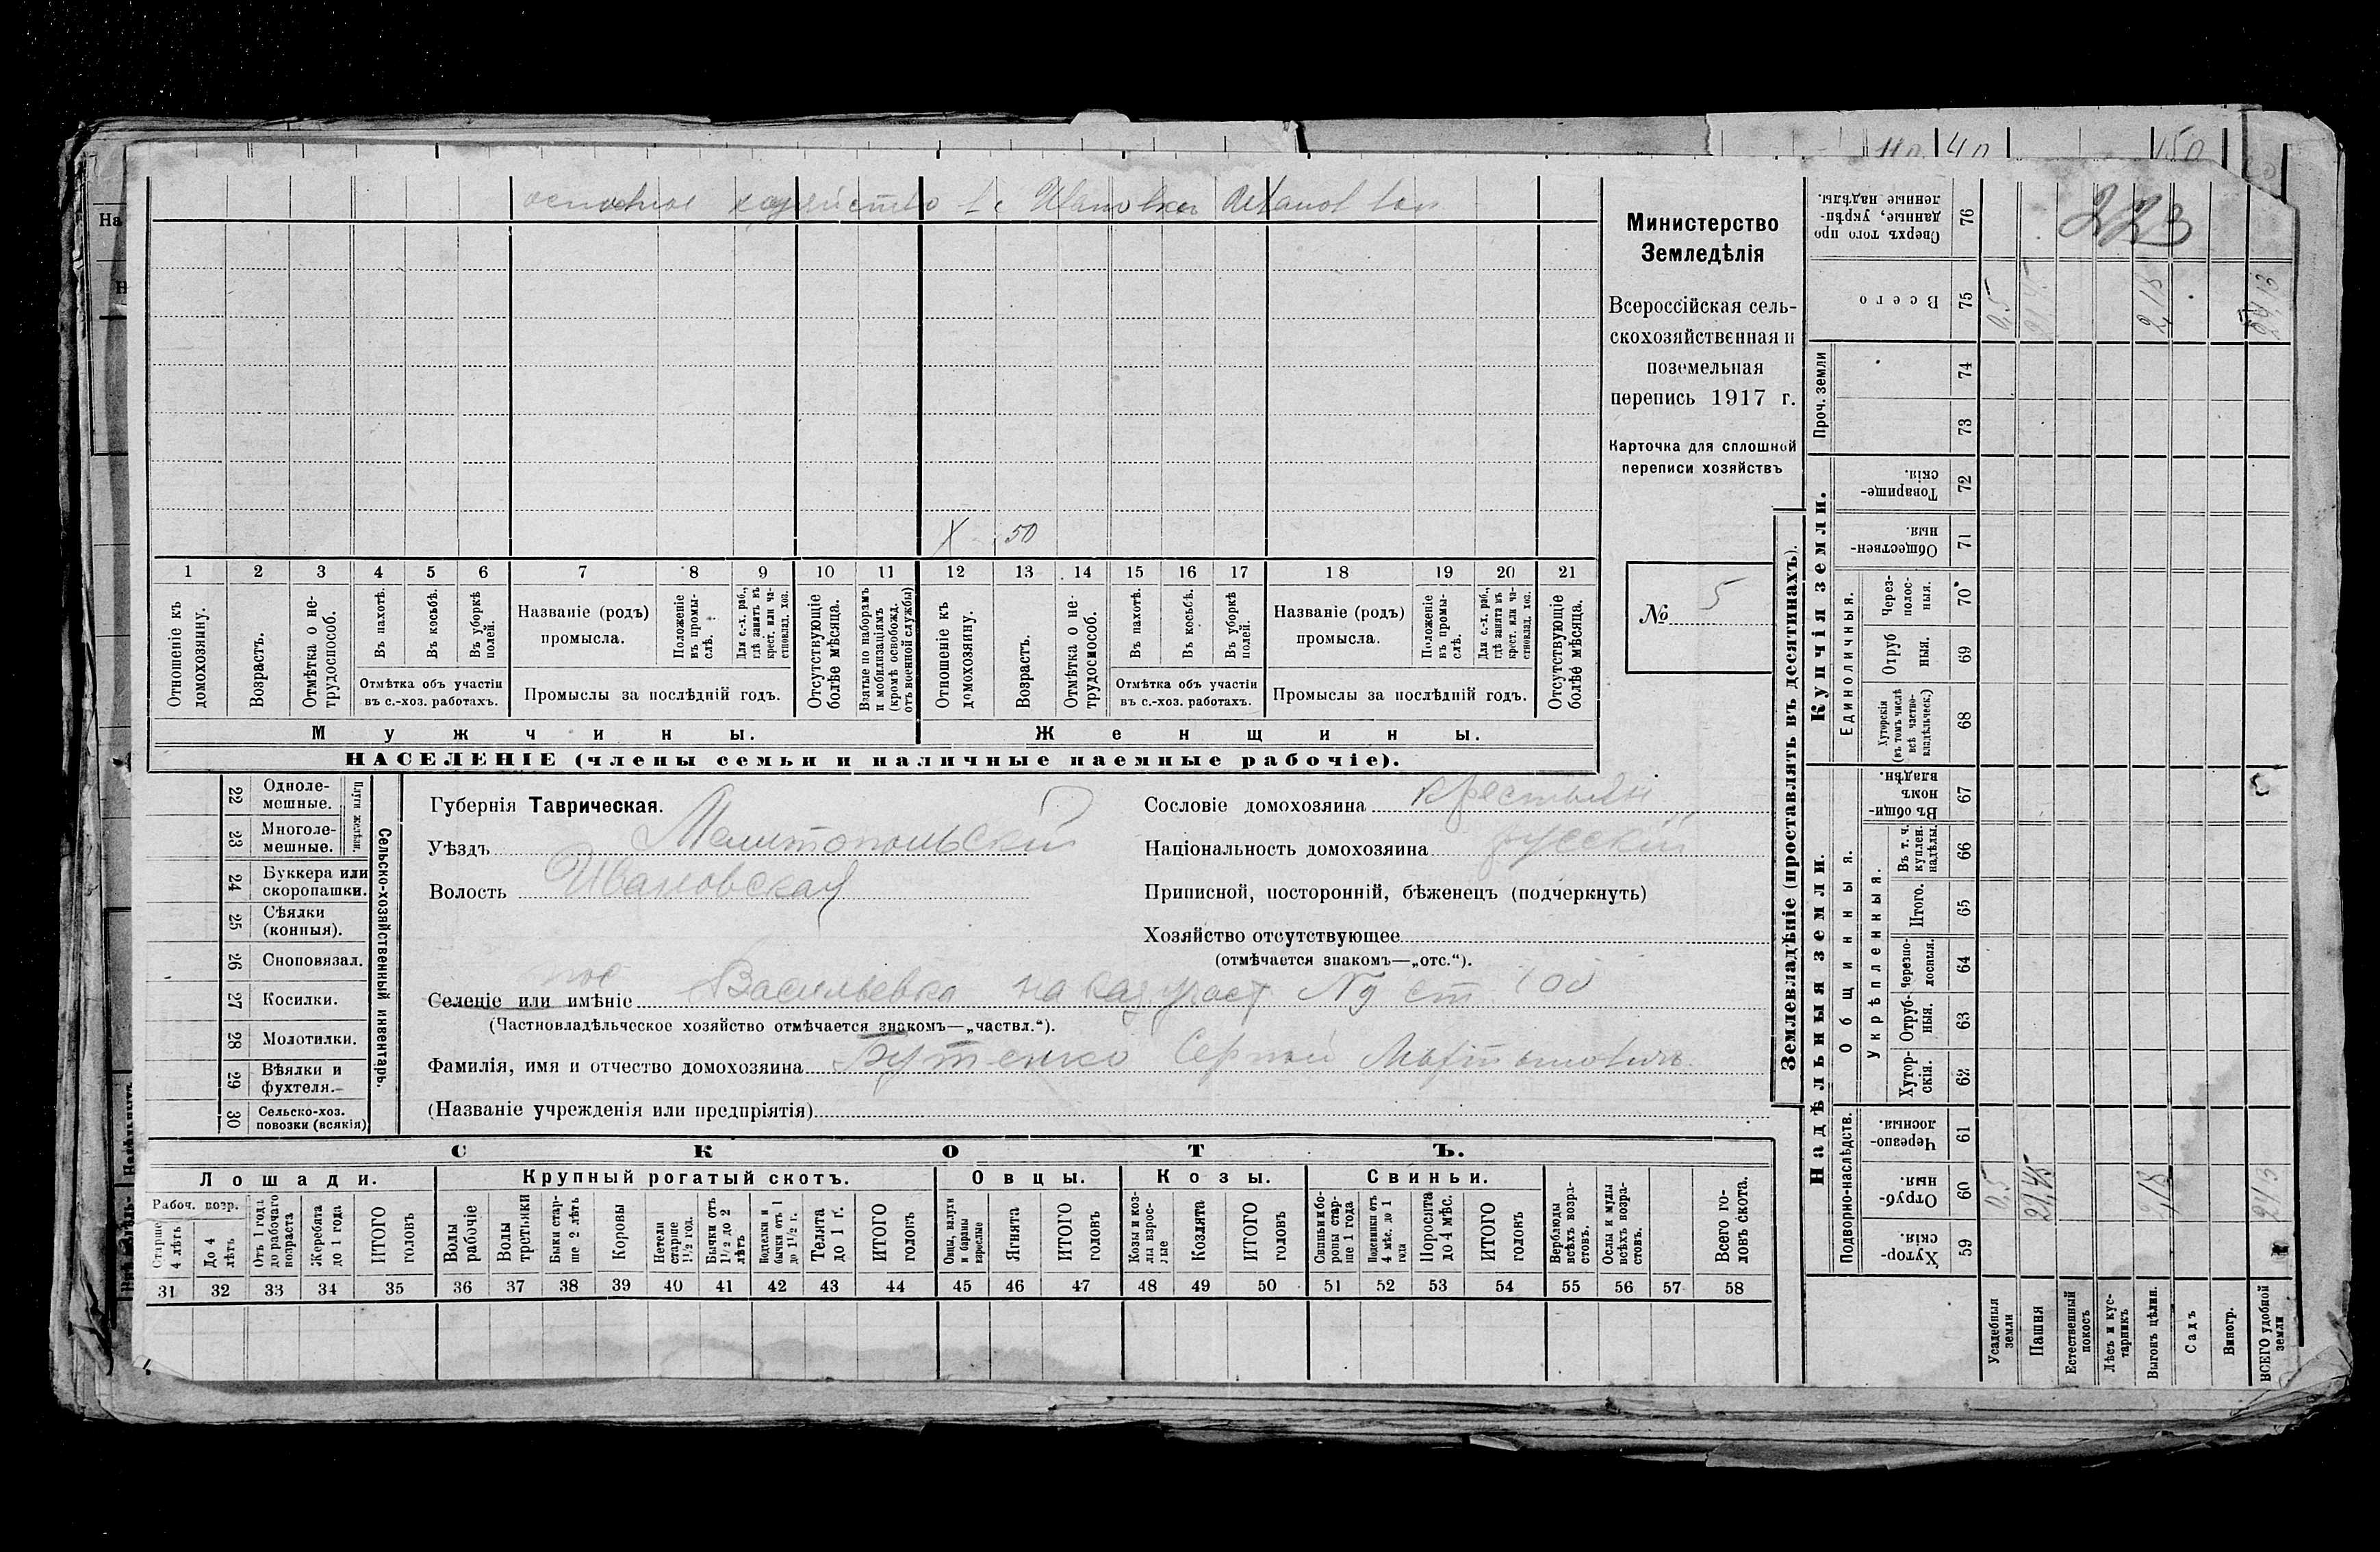 223
основное хозяйство в с Ивановка
Х 50
1 2 3 4 5 6 7 8 9 10 11 12 13 14 15 16 17 18 19 20 21
Отношеніе къ домохозяину.
Возрастъ.
Отмѣтка о нетрудоспособ.
Въ пахотѣ.
Въ косьбѣ.
Въ уборкѣ полей.
Отмѣтка объ участіи въ с.-хоз. работахъ.
Названіе (родъ) промысла.
Положеніе въ промыслѣ.
Для с.-х. раб., гдѣ занятъ въ крест. или частновлад. хоз.
Промыслы за послѣдній годъ.
Отсутствующіе болѣе мѣсяца.
Взятые по наборамъ и мобилизаціямъ (кромѣ освобожд. отъ военной службы)
Отношеніе къ домохозяину.
Возрастъ.
Отмѣтка о нетрудоспособ.
Въ пахотѣ.
Въ косьбѣ.
Въ уборкѣ полей.
Отмѣтка объ участіи въ с.-хоз. работахъ.
Названіе (родъ) промысла.
Положеніе въ промыслѣ.
Для с.-х. раб., гдѣ занята въ крест. или частновлад. хоз.
Промыслы за послѣдній годъ.
Отсутствующіе болѣе мѣсяца.
Мужчины. Женщины.
НАСЕЛЕНІЕ (члены семьи и наличные наемные рабочіе).
Министерство
Земледѣлія
Всероссійская сель-
скохозяйственная и
поземельная
перепись 1917 г.
Карточка для сплошной
переписи хозяйствъ
№ 5
22 Однолемешные.
23 Многолемешные.
Плуги желѣзн.
24 Буккера или скоропашки.
25 Сѣялки (конныя).
26 Сноповязал.
27 Косилки.
28 Молотилки.
29 Вѣялки и фухтеля.
30 Сельско-хоз. повозки (всякія)
Сельско-хозяйственный инвентарь.
Губернія Таврическая.
Уѣздъ Мелитопольскій
Волость Ивановская
Сословіе домохозяина крестьян
Національность домохозяина русскій
Приписной, посторонній, бѣженецъ (подчеркнуть)
Хозяйство отсутствующее
(отмѣчается знакомъ—„отс.“).
пос
Селеніе или имѣніе Васильевка на каз участ № ст 100
(Частновладѣльческое хозяйство отмѣчается знакомъ—„частвл.“).
Фамилія, имя и отчество домохозяина Бутенко Сергей Мартынович
(Названіе учрежденія или предпріятія)
СКОТЪ.
Лошади. Крупный рогатый скотъ. Овцы. Козы. Свиньи.
Рабоч. возр.
Старше 4 лѣтъ
До 4 лѣтъ
Отъ 1 года до рабочаго возраста
Жеребята до 1 года
ИТОГО головъ
Волы рабочіе
Волы третьяки
Быки старше 2 лѣтъ
Коровы
Нетели старше 1½ год.
Бычки отъ 1½ до 2 лѣтъ
Подтелки и бычки отъ 1 до 1½ г.
Телята до 1 г.
ИТОГО головъ
Овцы, валухи и бараны взрослые
Ягнята
ИТОГО головъ
Козы и козлы взрослые
Козлята
ИТОГО головъ
Свиньи и боровы старше 1 года
Подсвинки отъ 4 мѣс. до 1 года
Поросята до 4 мѣс.
ИТОГО головъ
Верблюды всѣхъ возрастовъ.
Ослы и мулы всѣхъ возрастовъ.
Всего головъ скота.
31 32 33 34 35 36 37 38 39 40 41 42 43 44 45 46 47 48 49 50 51 52 53 54 55 56 57 58
Землевладѣніе (проставлять въ десятинахъ).
Купчія земли.
Надѣльныя земли.
Сверхъ того проданные, укрѣпленные надѣлы. 76
Всего 75 0,5 21,45 2,18 24,13
Проч. земли
74
73
Товарищескія. 72
Общественныя. 71
Единоличныя.
Черезполосныя. 70
Отрубныя. 69
Хуторскія (въ томъ числѣ всѣ частновладѣльческ.) 68
Общинныя.
Въ общинномъ владѣн. 67
Укрѣпленныя.
Въ т. ч. куплен. надѣлы. 66
Итого. 65
Черезполосныя. 64
Отрубныя. 63
Хуторскія. 62
Подворно-наслѣдств.
Черезполосныя. 61
Отрубныя. 60 0,5 21,45 2,18 24,13
Хуторскія. 59
Усадебныя земли
Пашня
Естественный покосъ
Лѣсъ и кустарникъ
Выгонъ цѣлин.
Садъ
Виногр.
ВСЕГО удобной земли